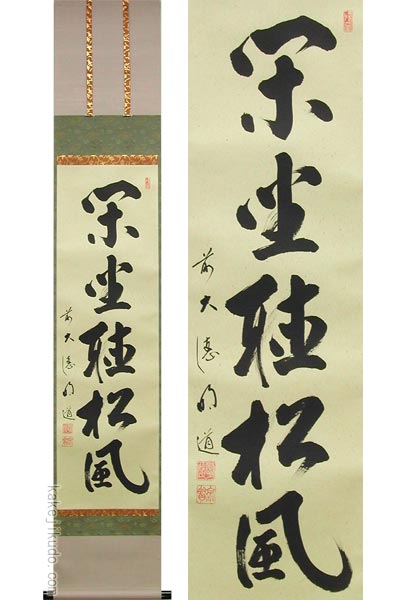 閑坐聴松風
前大徳明道
閑坐聴松風
前大徳明道
kakejikudo.com